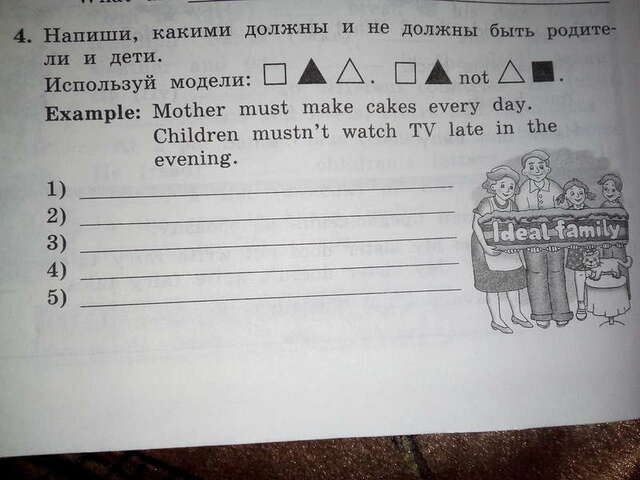 4. Напиши, какими должны и не должны быть родите-
ли и дети.
Используй модели: □ ▲ △ . □ ▲ not △ ■ .
Example: Mother must make cakes every day.
Children mustn't watch TV late in the
evening.
1)
2)
3)
4)
5)
Ideal family